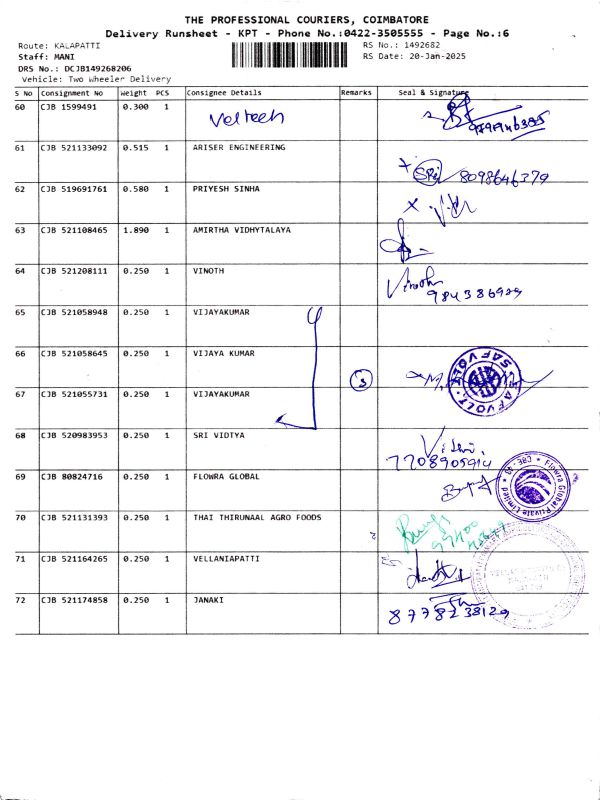 THE PROFESSIONAL COURIERS, COIMBATORE
Delivery Runsheet - KPT - Phone No.:0422-3505555 - Page No.:6
Route: KALAPATTI RS No.: 1492682
Staff: MANI RS Date: 20-Jan-2025
DRS No.: DCJB149268206
Vehicle: Two Wheeler Delivery
S No Consignment No Weight PCS Consignee Details Remarks Seal & Signature
60 CJB 1599491 0.300 1
61 CJB 521133092 0.515 1 ARISER ENGINEERING 8098646379
62 CJB 519691761 0.580 1 PRIYESH SINHA
63 CJB 521108465 1.890 1 AMIRTHA VIDHYTALAYA
64 CJB 521208111 0.250 1 VINOTH Vinoth
65 CJB 521058948 0.250 1 VIJAYAKUMAR
66 CJB 521058645 0.250 1 VIJAYA KUMAR 3 SAFVOLT
67 CJB 521055731 0.250 1 VIJAYAKUMAR
68 CJB 520983953 0.250 1 SRI VIDTYA 7708905914
69 CJB 80824716 0.250 1 FLOWRA GLOBAL Flowra Global Private Limited CBE-
70 CJB 521131393 0.250 1 THAI THIRUNAAL AGRO FOODS
71 CJB 521164265 0.250 1 VELLANIAPATTI
72 CJB 521174858 0.250 1 JANAKI 8778238129